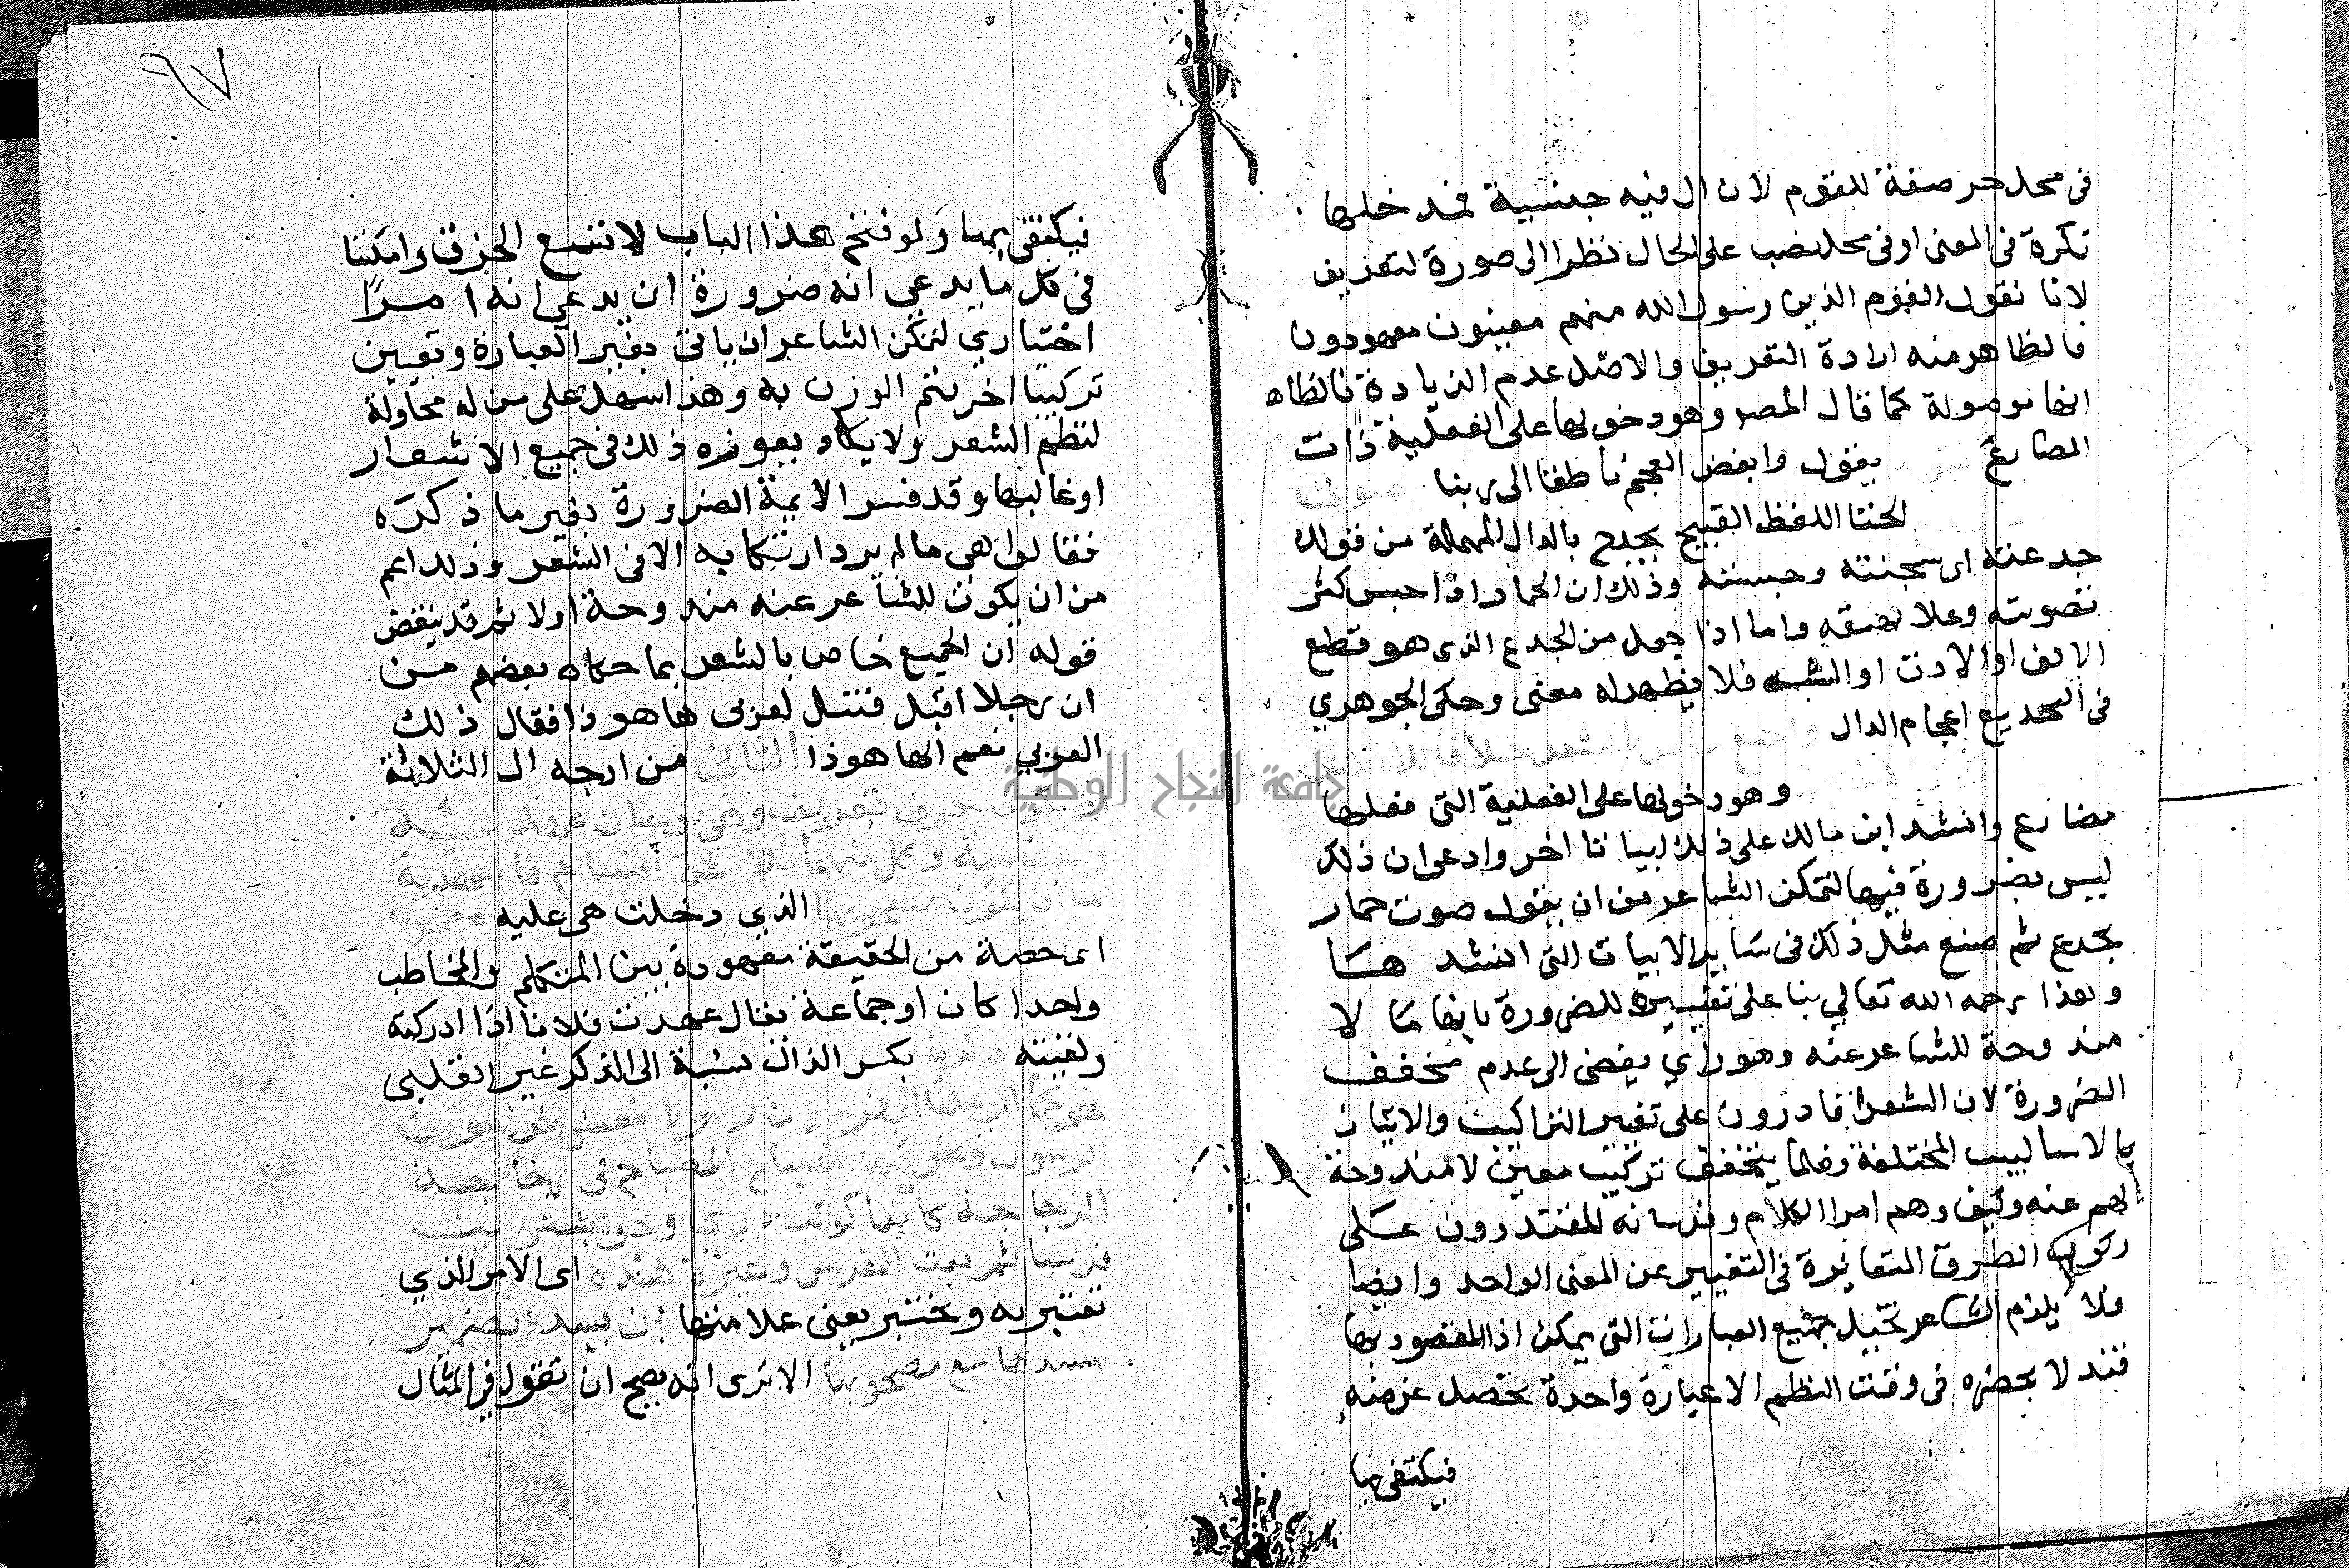 فى محل جر صفة للقوم لان ال فيه جنسية فمدخلها
نكرة فى المعنى او فى محل نصب على الحال نظرا الى صورة لتعريف
لانا نقول القوم الذين رسول الله منهم معينون معهودون
فالظاهر منه ارادة التعريف والاصل عدم الزيادة فالظاه
انها موصولة كما قال المصر وهو دخولها على الفعلية ذات
المضارع يقول وابغض العجم ناطقا الى ربنا
الخنا اللفظ القبيح يجدع بالدال المهملة من قولك
جدعته اى سجنته وحبسته وذلك ان الحمار اذا حبس كثر
تصويته وعلا نهيقه واما اذا جعل من الجدع الذى هو قطع
الانف او الاذن او الشفه فلا يظهر له معنى وحكى الجوهري
فى التجديع اعجام الدال
وهو دخولها على الفعلية التى فعلها
مضارع وانشد ابن مالك على ذلك ابياتا اخر وادعى ان ذلك
ليس بضرورة فيها لتمكن الشاعر من ان يقول صوت حمار
يجدع ثم صنع مثل ذلك فى ساير الابيات التى انشدها
وهذا رحمه الله تعالي بنا على تفسيره للضرورة بانها ما لا
مندوحة للشاعر عنه وهو راي يفضى الى عدم تحقق
الضرورة لان الشعرا قادرون على تغيير التراكيب والاتيان
بالاساليب المختلفة وقلما يتحقق تركيب معين لا مندوحة
لهم عنه وكيف وهم امرا الكلام وفرسانه المقتدرون على
ركوب الطرق المتغايرة فى التعبير عن المعنى الواحد وايضا
فلا يلزم الشاعر تخيل جميع العبارات التى يمكن اذ المقصود بها
فقد لا يحضره فى وقت النظم الا عبارة واحدة تحصل غرضه
فيكتفى بها
٩٧
فيكتفى بها ولو فتح هذا الباب لاتسع الخرق وامكننا
فى كل ما يدعى انه ضرورة ان يدعى انه امرًا
اختياري لتمكن الشاعر ان ياتى بغير العبارة وتعيين
تركيبا اخر يتم الوزن به وهذا سهل على من له محاولة
لنظم الشعر ولا يكاد يعوزه ذلك فى جميع الاشعار
او غالبها وقد فسر الايمة الضرورة بغير ما ذكره
فقالوا هى ما لم يرد ارتكابه الا فى الشعر وذلك اعم
من ان يكون للشاعر عنه مندوحة اولا ثم قد ينقض
قوله ان الجميع خاص بالشعر بما حكاه بعضهم من
ان رجلا اقبل فقيل لعربى ها هو ذا فقال ذلك
العربي نعم الها هو ذا الثانى من اوجه ال الثلاثة
ان تكون حرف تعريف وهى نوعان عهدية
وجنسية وكل منهما ثلاثة اقسام فالعهدية
اما ان يكون مصحوبها الذي دخلت هى عليه معهودا
اى حصة من الحقيقة معهودة بين المتكلم والمخاطب
واحدا كان او جماعة يقال عهدت فلانا اذا ادركته
ولقيته ذكريا بكسر الذال نسبة الى الذكر غير القلبى
نحو كما ارسلنا الى فرعون رسولا فعصى فرعون
الرسول ونحو فيها مصباح المصباح فى زجاجة
الزجاجة كانها كوكب دري ونحو اشتريت
فرسا ثم بعت الفرس وعبرة هذه اى الامر الذي
تعتبر به وتختبر يعنى علامتها ان يسد الضمير
مسدها مع مصحوبها الا ترى انه يصح ان تقول فى المثال
جامعة النجاح الوطنية